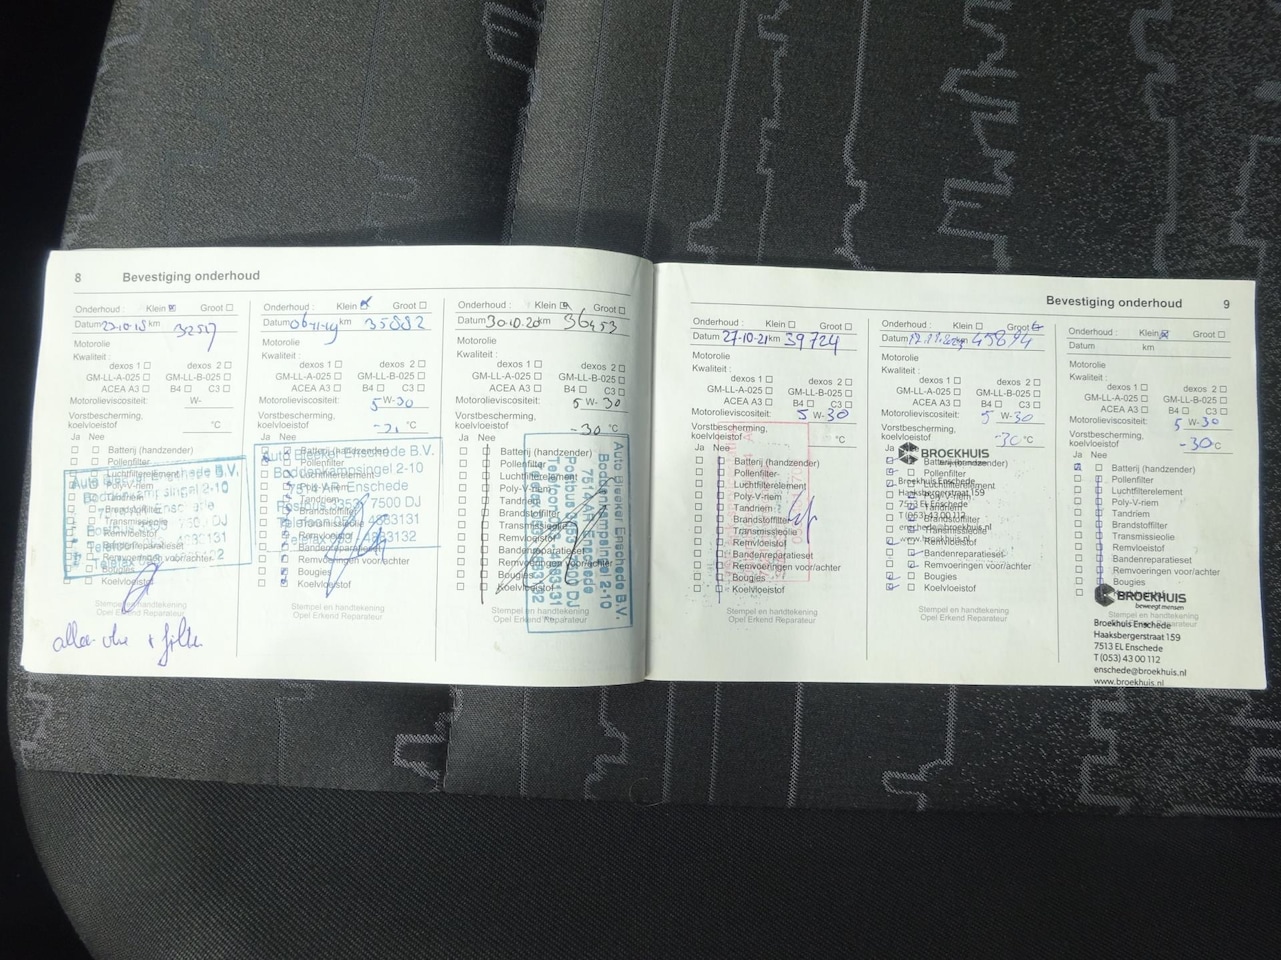 8 Bevestiging onderhoud
Onderhoud : Klein Groot
Datum km
Motorolie
Kwaliteit :
dexos 1 dexos 2
GM-LL-A-025 GM-LL-B-025
ACEA A3 B4 C3
Motorolieviscositeit: W-
Vorstbescherming,
koelvloeistof °C
Ja Nee
Batterij (handzender)
Pollenfilter
Luchtfilterelement
Poly-V-riem
Tandriem
Brandstoffilter
Transmissieolie
Remvloeistof
Bandenreparatieset
Remvoeringen voor/achter
Bougies
Koelvloeistof
Auto Bleeker Enschede B.V.
Boddenkampsingel 2-10
Stempel en handtekening
Opel Erkend Reparateur
Onderhoud : Klein Groot
Datum 06-11-19 km 35882
Motorolie
Kwaliteit :
dexos 1 dexos 2
GM-LL-A-025 GM-LL-B-025
ACEA A3 B4 C3
Motorolieviscositeit: 5 W-30
Vorstbescherming,
koelvloeistof °C
Ja Nee
Batterij (handzender)
Pollenfilter
Luchtfilterelement
Poly-V-riem
Tandriem
Brandstoffilter
Transmissieolie
Remvloeistof
Bandenreparatieset
Remvoeringen voor/achter
Bougies
Koelvloeistof
Auto Bleeker Enschede B.V.
Boddenkampsingel 2-10
7514 AR Enschede
Stempel en handtekening
Opel Erkend Reparateur
Onderhoud : Klein Groot
Datum 30-10-20 km 36453
Motorolie
Kwaliteit :
dexos 1 dexos 2
GM-LL-A-025 GM-LL-B-025
ACEA A3 B4 C3
Motorolieviscositeit: 5 W-30
Vorstbescherming,
koelvloeistof -30 °C
Ja Nee
Batterij (handzender)
Pollenfilter
Luchtfilterelement
Poly-V-riem
Tandriem
Brandstoffilter
Transmissieolie
Remvloeistof
Bandenreparatieset
Remvoeringen voor/achter
Bougies
Koelvloeistof
Auto Bleeker Enschede B.V.
Boddenkampsingel 2-10
7514 AR Enschede
Stempel en handtekening
Opel Erkend Reparateur
Bevestiging onderhoud 9
Onderhoud : Klein Groot
Datum 27-10-21 km 39724
Motorolie
Kwaliteit :
dexos 1 dexos 2
GM-LL-A-025 GM-LL-B-025
ACEA A3 B4 C3
Motorolieviscositeit: 5 W-30
Vorstbescherming,
koelvloeistof °C
Ja Nee
Batterij (handzender)
Pollenfilter
Luchtfilterelement
Poly-V-riem
Tandriem
Brandstoffilter
Transmissieolie
Remvloeistof
Bandenreparatieset
Remvoeringen voor/achter
Bougies
Koelvloeistof
Stempel en handtekening
Opel Erkend Reparateur
Onderhoud : Klein Groot
Datum km
Motorolie
Kwaliteit :
dexos 1 dexos 2
GM-LL-A-025 GM-LL-B-025
ACEA A3 B4 C3
Motorolieviscositeit: 5 W-30
Vorstbescherming,
koelvloeistof -30 °C
Ja Nee
BROEKHUIS
Batterij (handzender)
Pollenfilter
Luchtfilterelement
Broekhuis Enschede
Haaksbergerstraat 159
7513 EL Enschede
T (053) 43 00 112
enschede@broekhuis.nl
www.broekhuis.nl
Poly-V-riem
Tandriem
Brandstoffilter
Transmissieolie
Remvloeistof
Bandenreparatieset
Remvoeringen voor/achter
Bougies
Koelvloeistof
Stempel en handtekening
Opel Erkend Reparateur
Onderhoud : Klein Groot
Datum km
Motorolie
Kwaliteit :
dexos 1 dexos 2
GM-LL-A-025 GM-LL-B-025
ACEA A3 B4 C3
Motorolieviscositeit: 5 W-30
Vorstbescherming,
koelvloeistof -30 °C
Ja Nee
Batterij (handzender)
Pollenfilter
Luchtfilterelement
Poly-V-riem
Tandriem
Brandstoffilter
Transmissieolie
Remvloeistof
Bandenreparatieset
Remvoeringen voor/achter
Bougies
Koelvloeistof
BROEKHUIS
beweegt mensen
Broekhuis Enschede
Haaksbergerstraat 159
7513 EL Enschede
T (053) 43 00 112
enschede@broekhuis.nl
www.broekhuis.nl